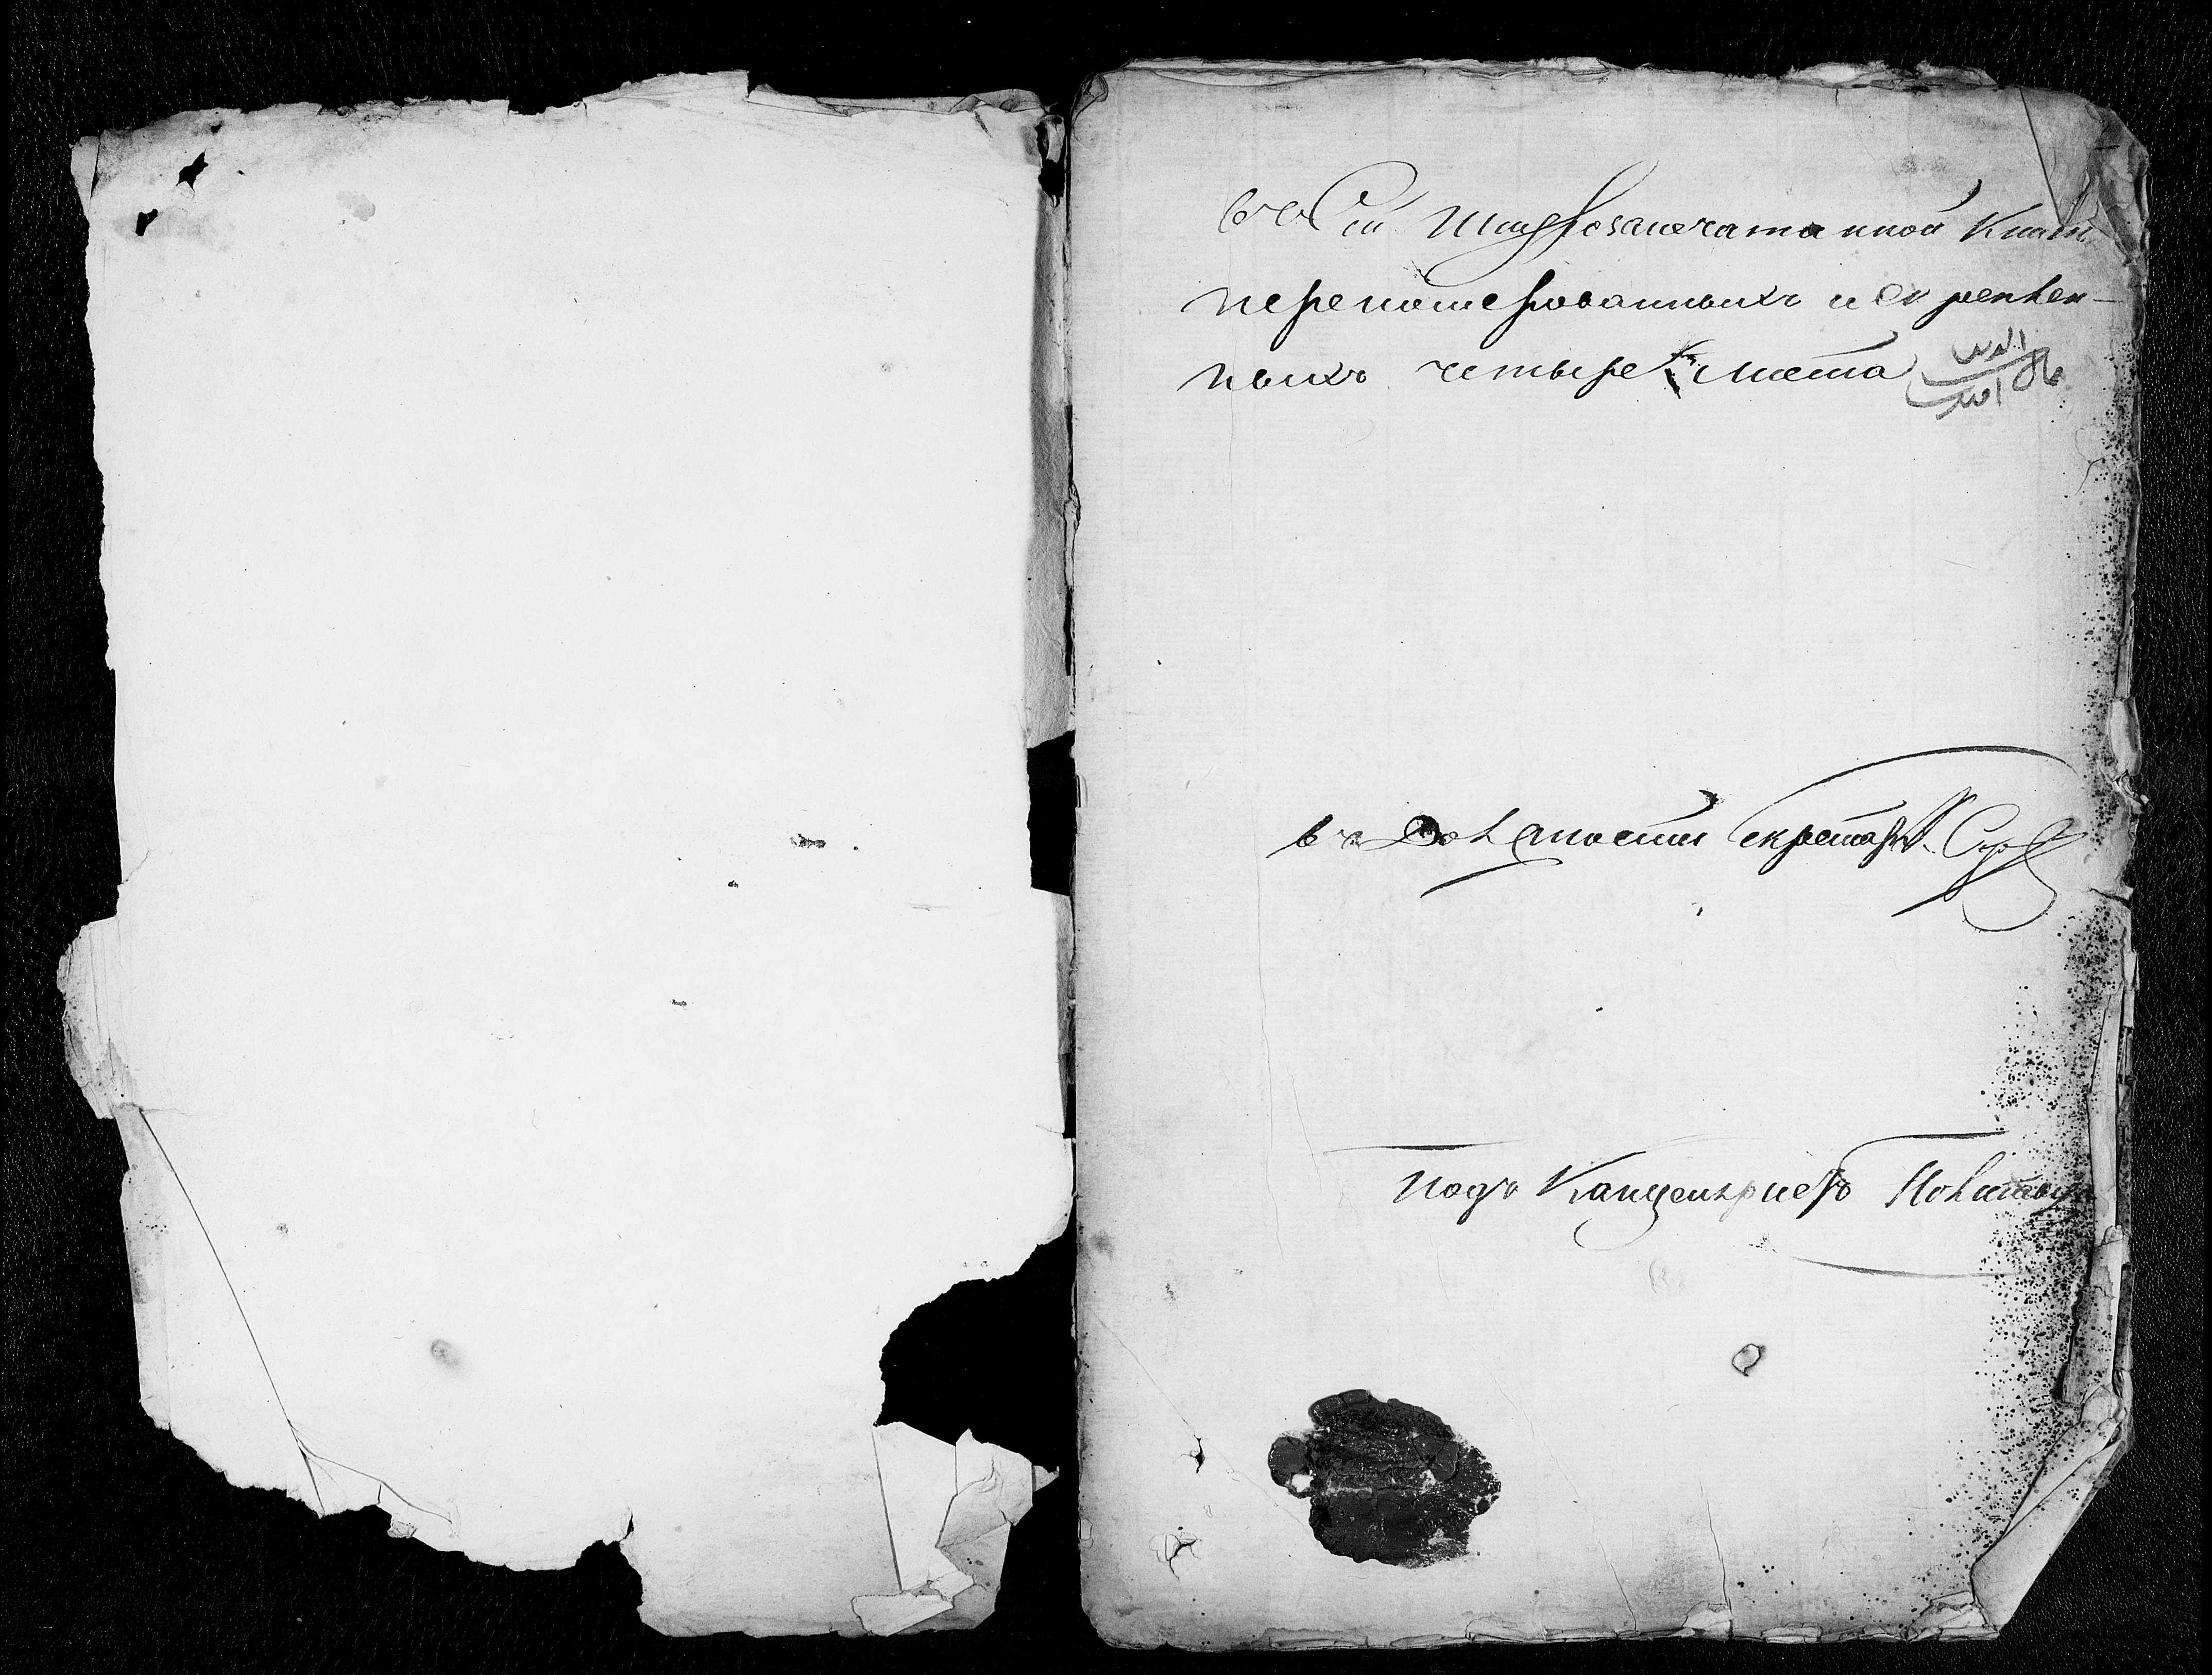 въ Сей шнурозапечатанной книги
переномерованныхъ и скреплен-
ныхъ четыре листа
въ Должности Секретаря
подъ Канцеляристъ